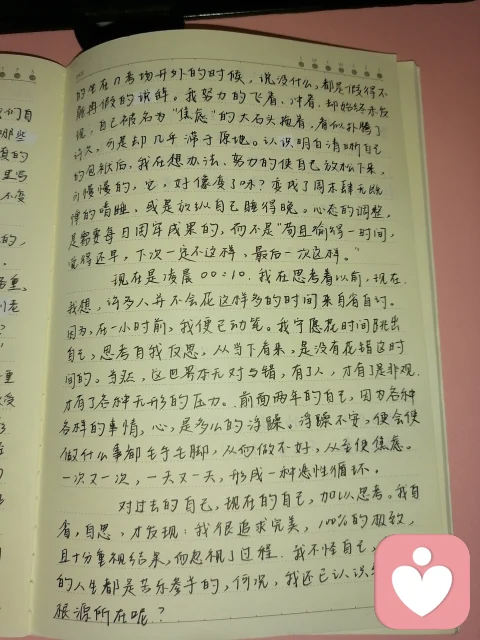 的坐在门考场外的时候,说没什么,都是假得不
能再假的谎解。我努力的飞着、冲着,却始终未发
现,自己被名为“焦虑”的大石头拖着,看似扑腾了
许久,可是却几乎滞于原地。认识明白清晰自己
的包袱后,我在想办法、努力的使自己放松下来,
可慢慢的,它,好像变了味?变成了周末肆无忌
惮的睡,或是放纵自己睡得晚。心态的调整,
是需要每日周年成果的,而不是“苟且偷得一时间,
觉得还早,下次一定不这样,最后一次这样。”
现在是凌晨00:10.我在思考着以前,现在.
我想,许多人并不会花这样多的时间来自省自讨。
因为,在一小时前,我便已动笔。我宁愿花时间跳出
自己,思考自我反思,从当下看来,是没有花错这时
间的。当然,这世界本无对与错,有了人,才有了是非观.
才有了各种无形的压力。前面两年的自己,因为各种
各样的事情,心,是多么的浮躁。浮躁不安,便会使
做什么事都毛手毛脚,从而做不好,从至使焦虑。
一次又一次,一天又一天,形成一种恶性循环.
对过去的自己,现在的自己,加以思考。我自
省,自思,才发现:我很追求完美,100%的极致,
且十分重视结果,而忽视了过程.我不怪自己,
的人生都是苦乐掺半的,何况,我还已认识
根源所在呢?